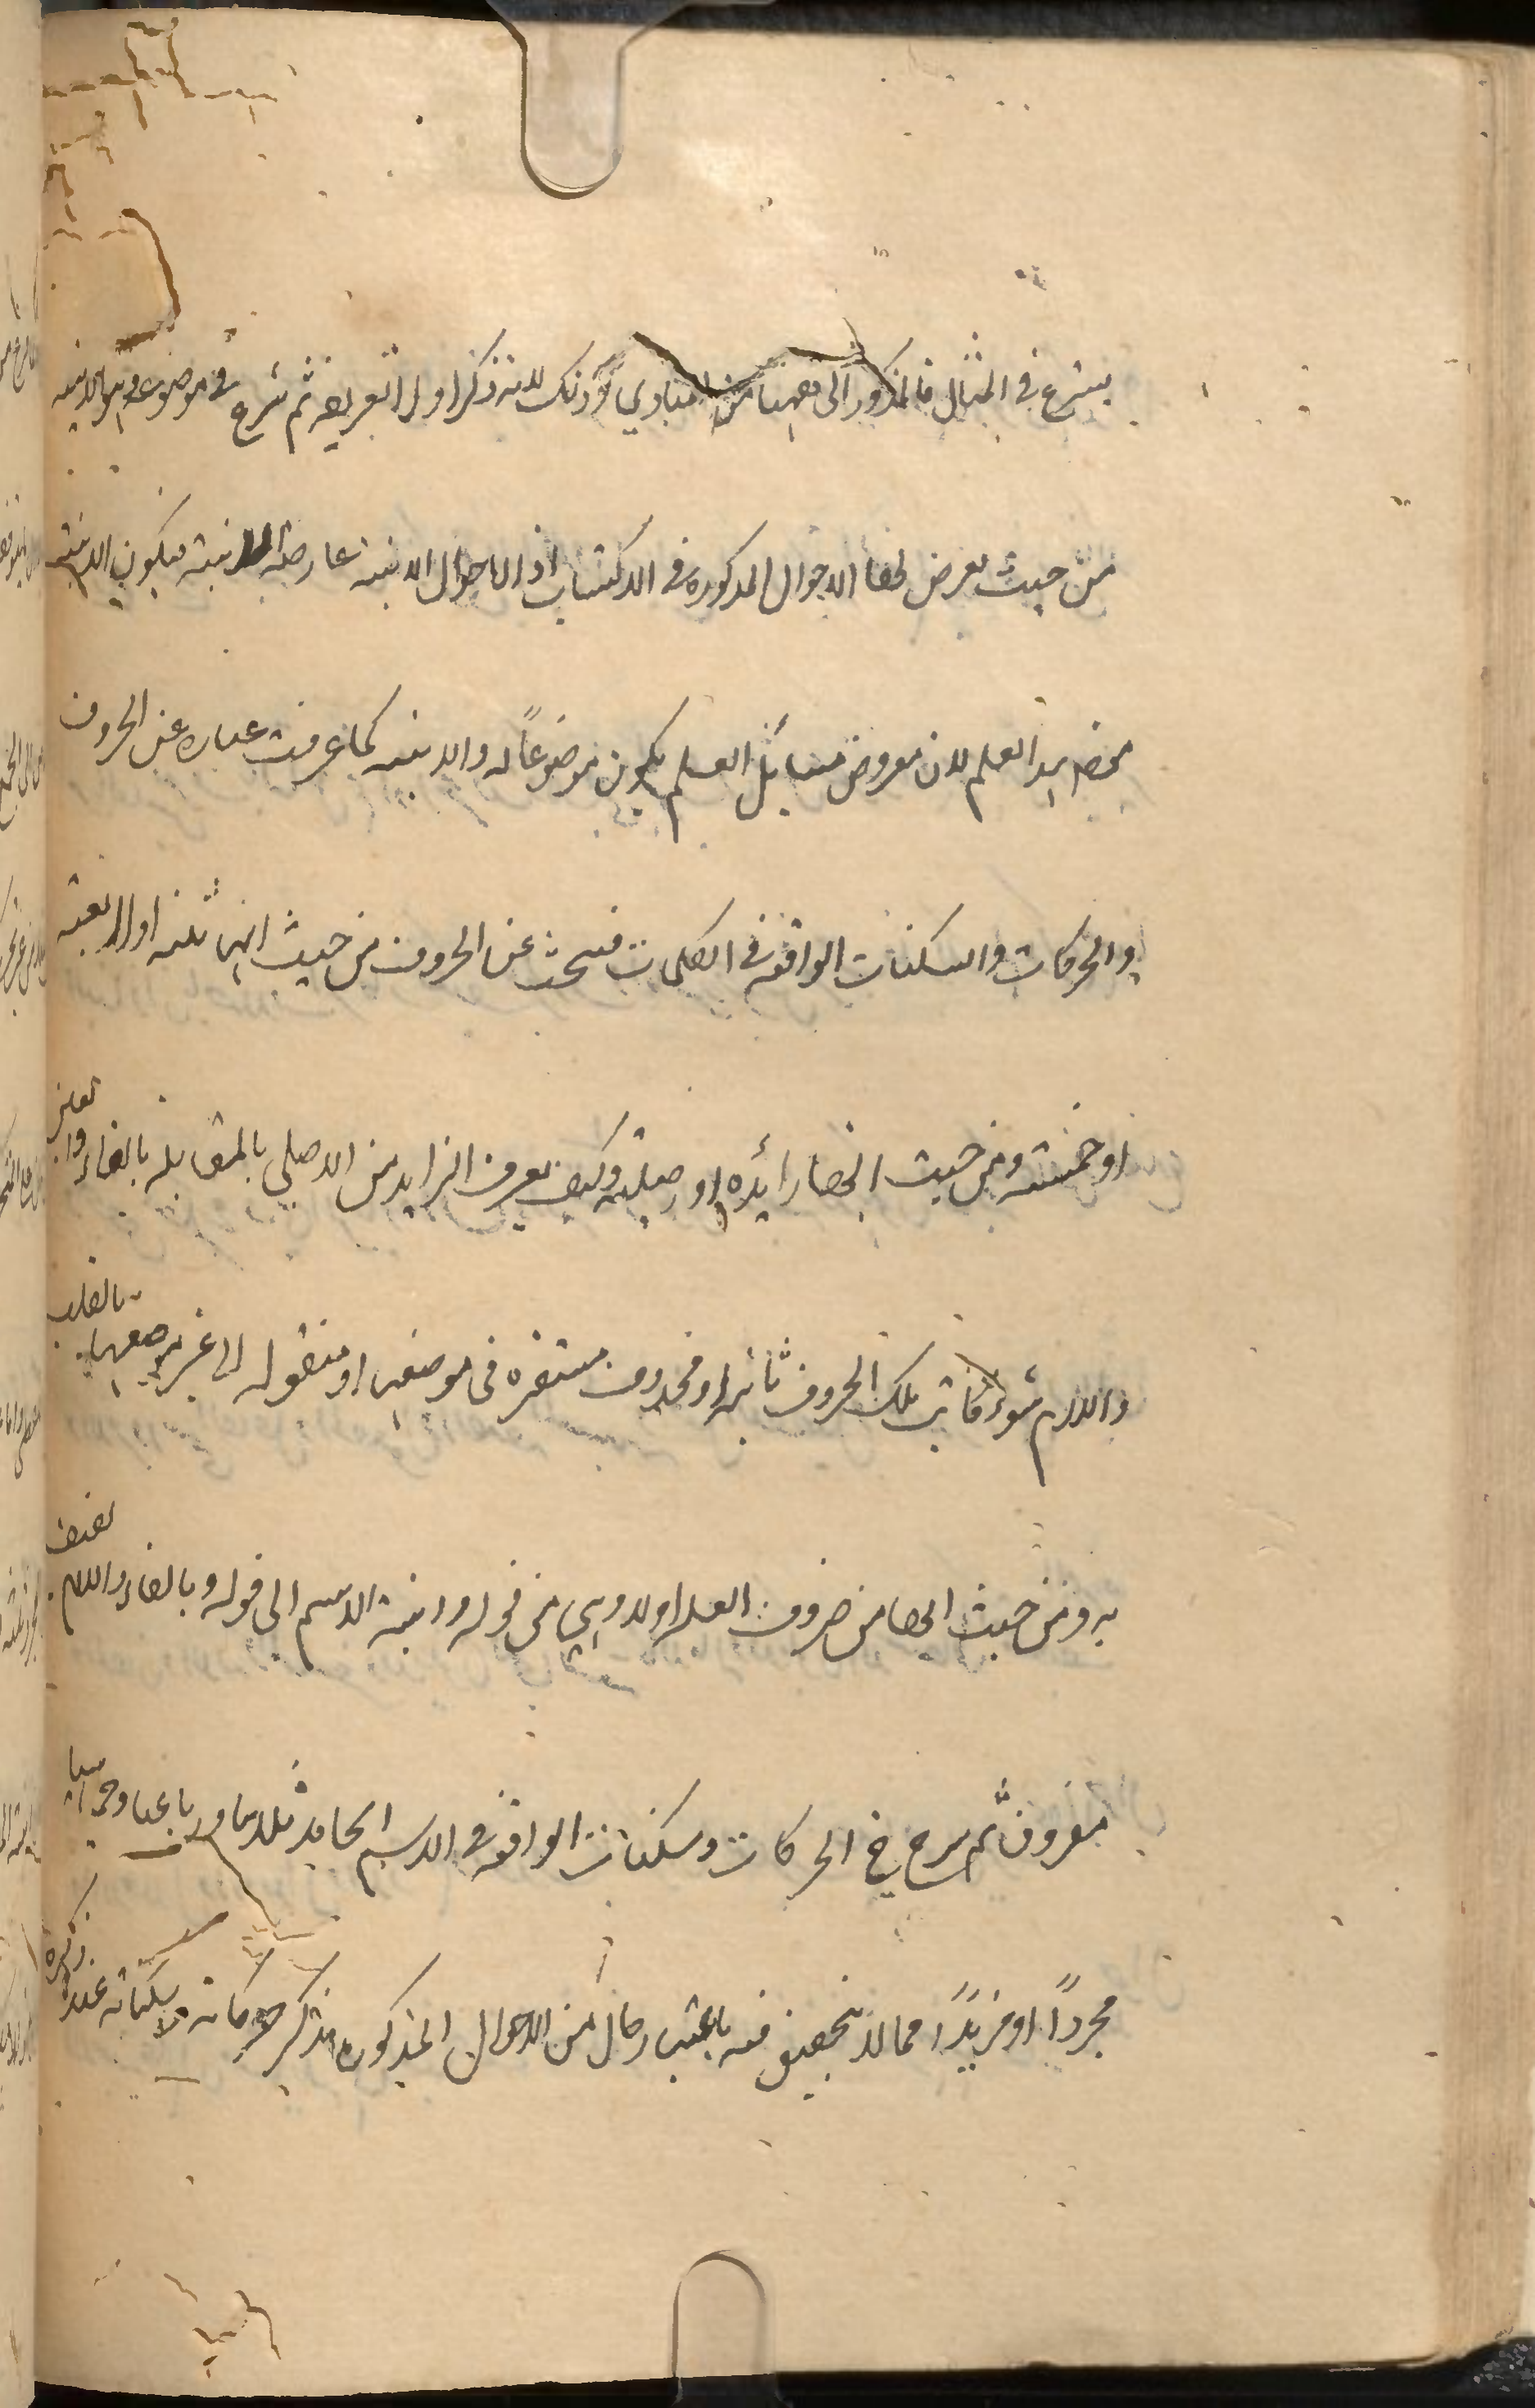 يشرع في المثال فالمذكور الى ههنا من المبادي وذلك لانه ذكر اولا التعريف ثم شرع في موضوعه وهو الابنيه
من حيث يعرض لها الاحوال المذكوره في الكتاب اذ الاحوال الابنيه عارضة للابنية فيكون الابنية
هذا العلم لان معروض مسائل العلم يكون موضوعاً له والابنيه كما عرفت عباره عن الحروف
والحركات والسكنات الواقعه في الكلمات فبحث عن الحروف من حيث انها ثلثه او اربعة
او خمسته ومن حيث انها زائده او اصليه وكيف يعرف الزايد من الاصلي بالمقابله بالفاء والعين
واللام سواء كانت تلك الحروف ثابته او محذوف مستقره في موضعها او منقوله الى غير موضعها بالقلب
به ومن حيث انها من حروف العله اولا وهي من قوله وابنية الاسم الى قوله وبالفاء واللام لفيف
مفروق ثم شرع في الحركات وسكنات الواقعه في الاسم الجامد ثلاثيا ورباعيا وخماسيا
مجرداً او مزيداً مما لا فيه باعتبار حال من الاحوال المذكوره حركاته وسكناته عند ذكره